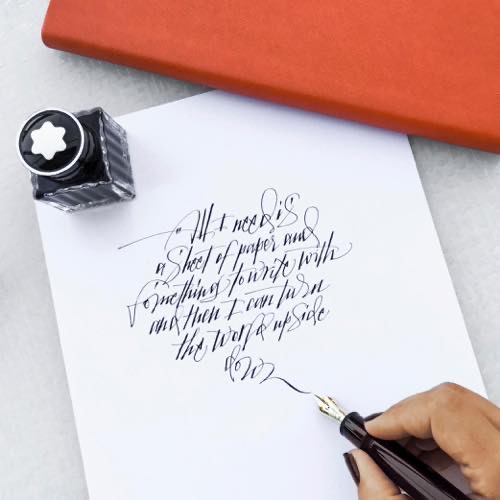 "All I need is
a sheet of paper and
something to write with
and then I can turn
the world upside
down